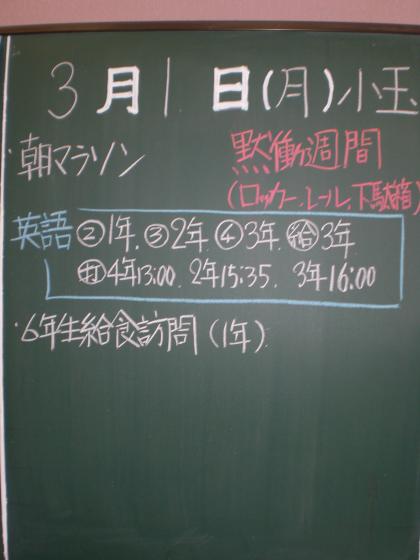 3月1日(月)小玉
・朝マラソン
黙働週間
(ロッカー、レール、下駄箱)
英語 ②1年 ③2年 ④3年 ㊗3年
㊉4年13:00. 2年15:35. 3年16:00
・6年生給食訪問(1年)